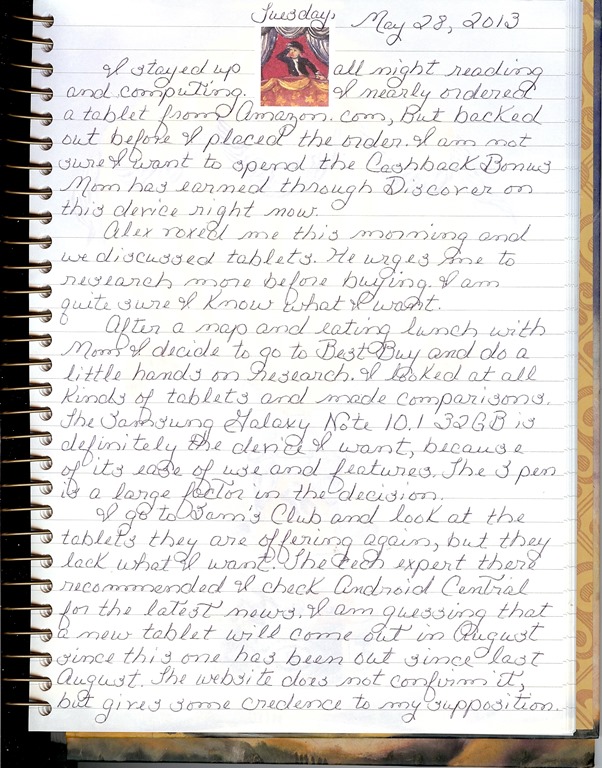 Tuesday, May 28, 2013
I stayed up all night reading
and computing. I nearly ordered
a tablet from Amazon.com, But backed
out before I placed the order. I am not
sure I want to spend the Cashback Bonus
Mom has earned through Discover on
this device right now.
Alex voxed me this morning and
we discussed tablets. He urges me to
research more before buying. I am
quite sure I know what I want.
After a nap and eating lunch with
Mom I decide to go to Best Buy and do a
little hands on research. I looked at all
kinds of tablets and made comparisons.
The Samsung Galaxy Note 10.1 32GB is
definitely the device I want, because
of its ease of use and features. The S pen
is a large factor in the decision.
I go to Sam's Club and look at the
tablets they are offering again, but they
lack what I want. The tech expert there
recommended I check Android Central
for the latest news. I am guessing that
a new tablet will come out in August
since this one has been out since last
August. The website does not confirm it,
but gives some credence to my supposition.